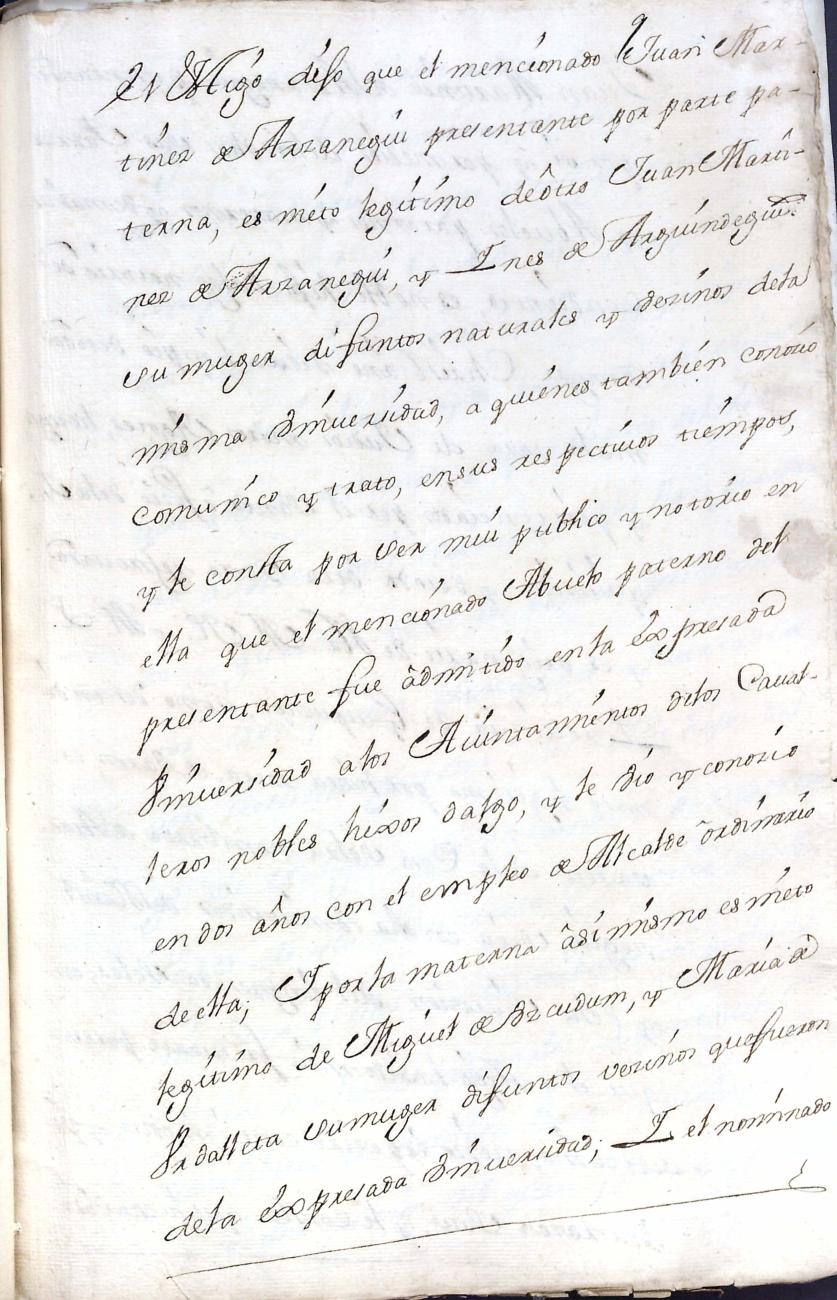 2º Migo dijo que el mencionado Juan Mar-
tinez de Arzanegui presentante por parte pa-
terna, es nieto legitimo de ôtro Juan Marti-
nez de Arzanegui, y Ines de Arguindegui
su muger difuntos naturales y vezinos dela
misma Vniversidad, a quiénes tambien conozio
comunico y trato, en sus respectivos tiempos,
y le consta por ser mui publico y notorio en
ella que el mencionado Abuelo paterno del
presentante fue âdmitido en la êxpresada
Vniversidad a los Aiuntamientos delos Caval-
leros nobles hixos dalgo, y le vio y conozio
en dos años con el empleo de Alcalde ôrdinario
de ella; Y por la materna âsi mismo es nieto
legitimo de Miguel de Vzcudum, y Maria de
Vrdalleta su muger difuntos vezinos que fueron
dela êxpresada Vniversidad; Y el nominado